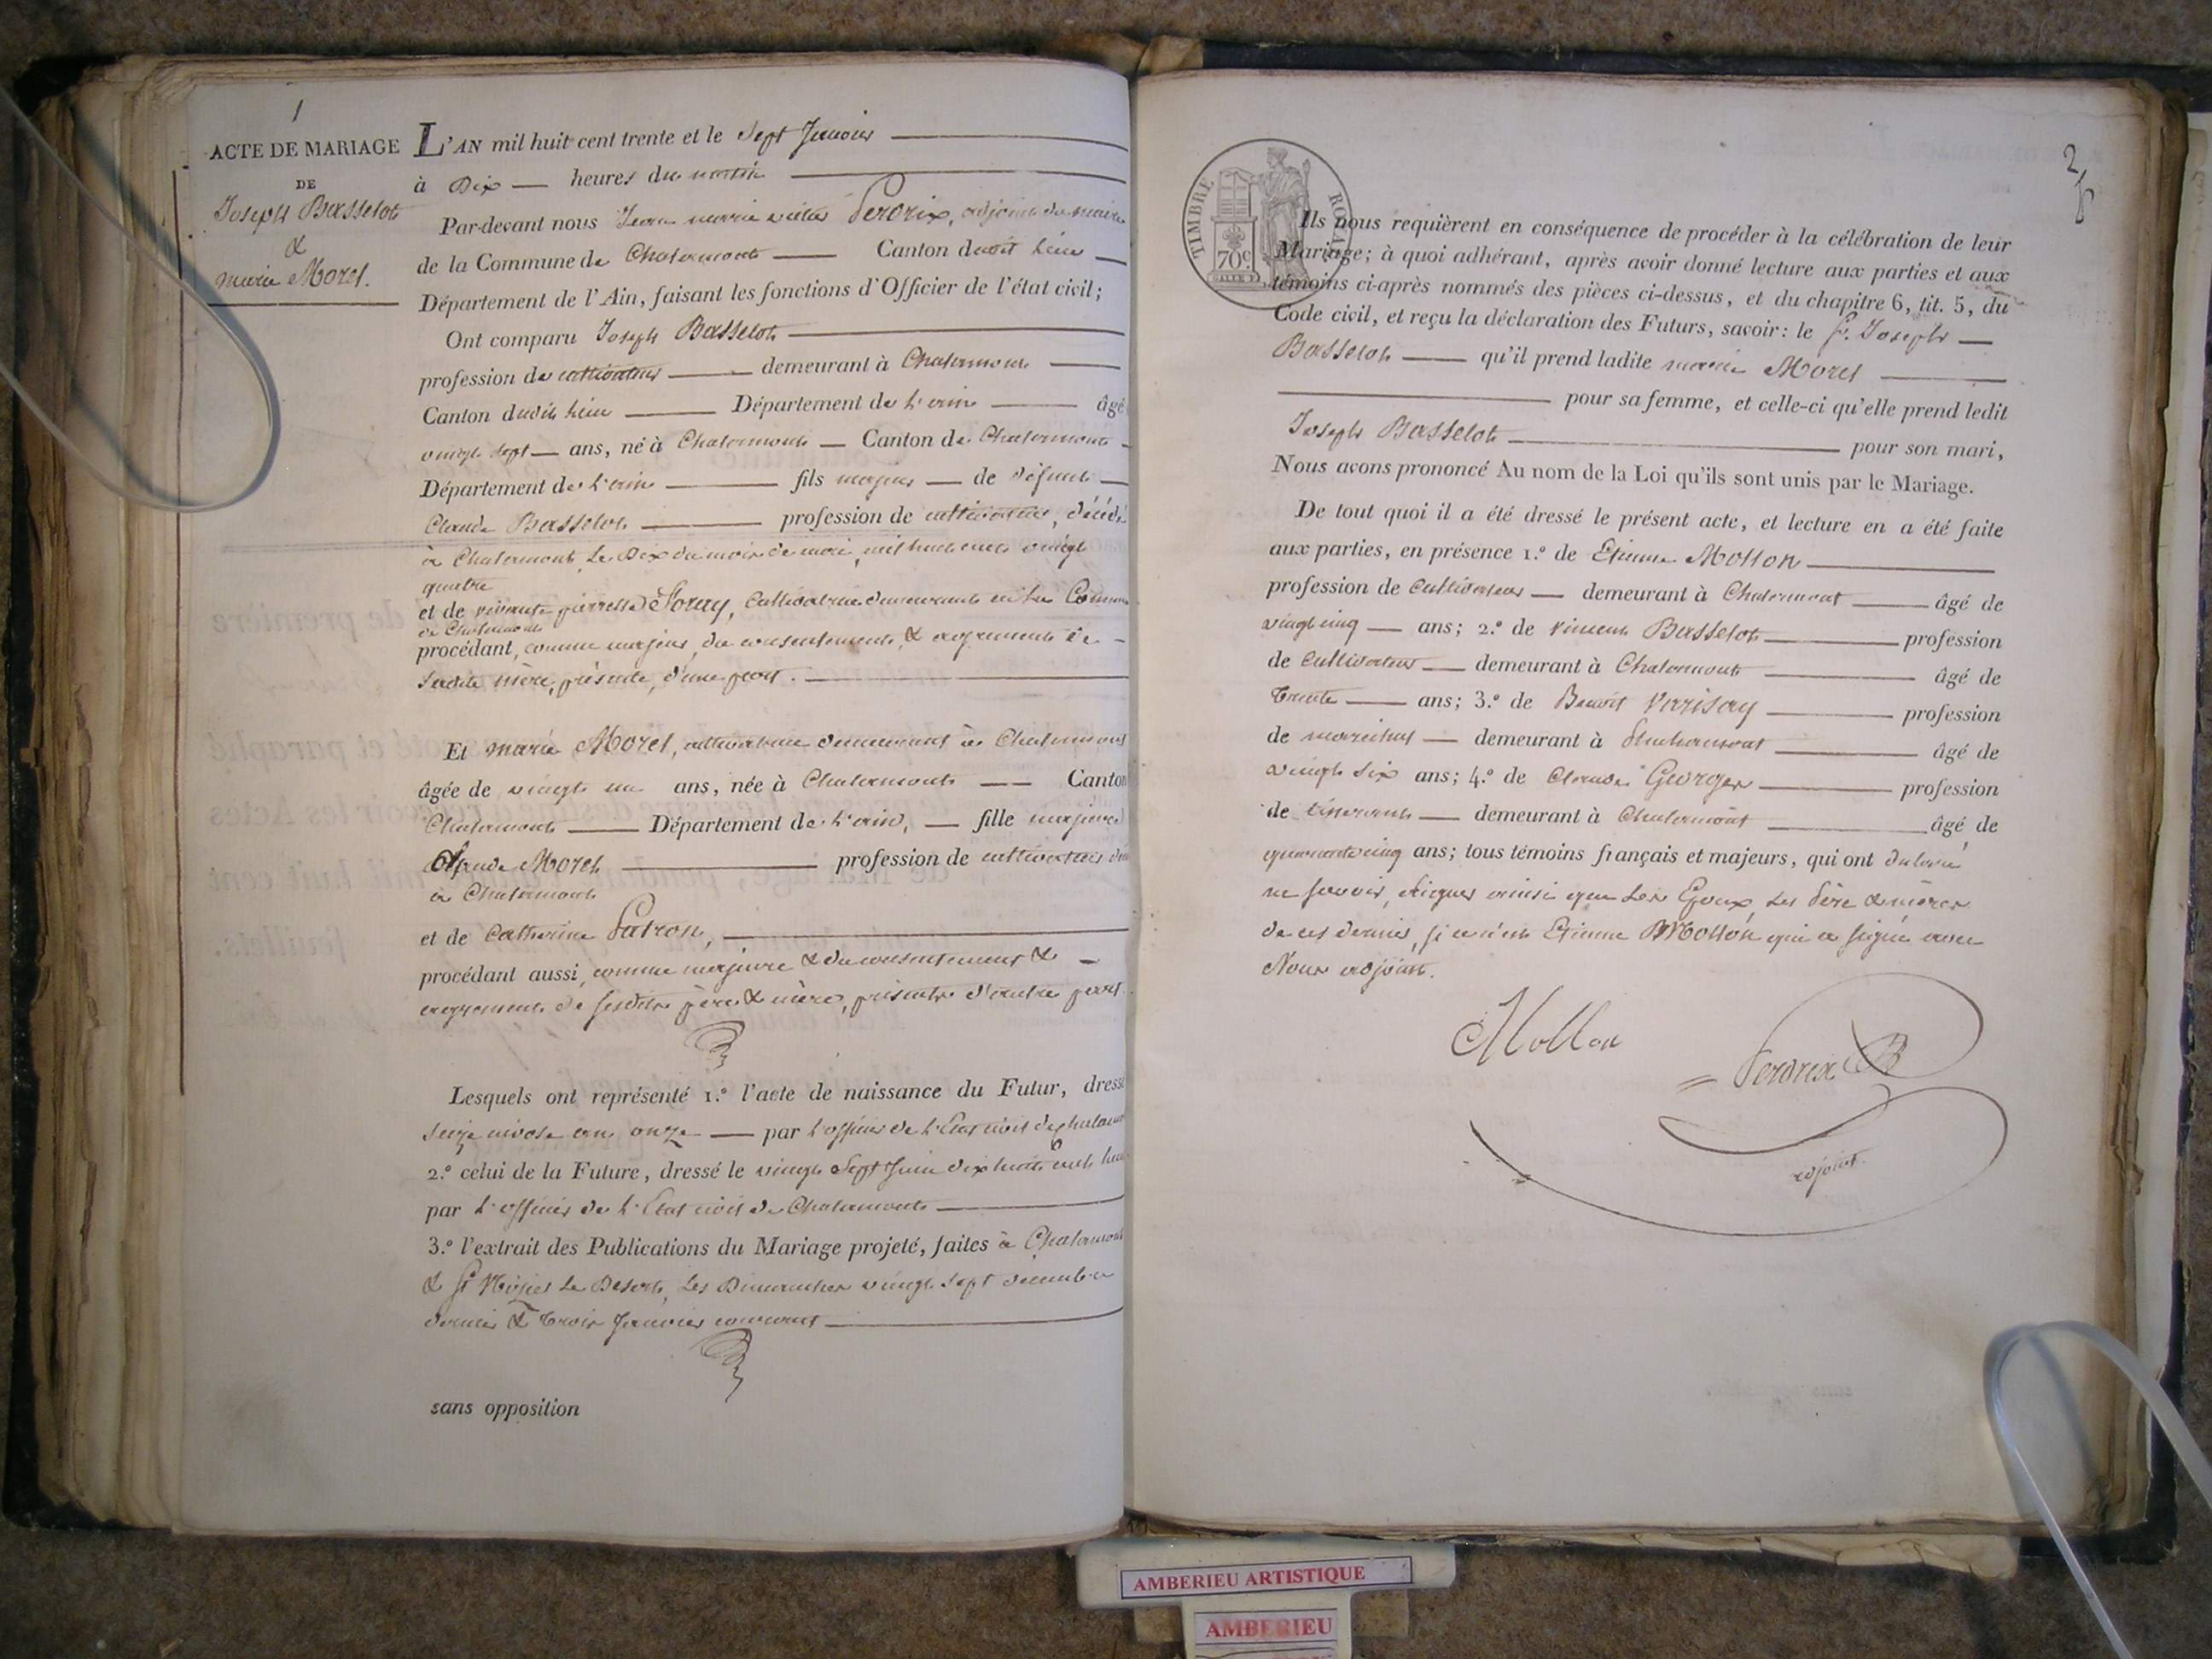 1
ACTE DE MARIAGE
DE
Joseph Basselot
&
marie Morel.
L'AN mil huit cent trente et le sept Janvier
à Dix heures du matin
Par-devant nous Jean marie Perdrix, adjoint du maire
de la Commune de Chalamont Canton dudit lieu
Département de l'Ain, faisant les fonctions d'Officier de l'état civil;
Ont comparu Joseph Basselot
profession de cultivateur demeurant à Chalamont
Canton dudit lieu Département de l'ain âgé
vingt sept ans, né à Chalamont Canton de Chalamont
Département de l'ain fils majeur de défunt
Claude Basselot profession de cultivateur, décédé
à Chalamont le Dix du mois de mai, mil huit cent vingt
quatre
et de vivante pierrette cultivatrice demeurant en la Commune
de Chalamont
procédant, comme majeur, du consentement & agrément de
sadite mère, présente, d'une part.
Et marie Morel, cultivatrice demeurant à Chalamont
âgée de vingt un ans, née à Chalamont Canton
Chalamont Département de l'ain, fille majeure
Claude Morel profession de cultivateur
à Chalamont
et de Catherine Patron,
procédant aussi, comme majeure & du consentement &
agrément de sesdits père & mère, présents d'autre part
Lesquels ont représenté 1.º l'acte de naissance du Futur, dressé
seize nivose an onze par l'officier de l'Etat civil de Chalamont
2.º celui de la Future, dressé le vingt sept Juin dix huit cent huit
par l'officier de l'Etat civil de Chalamont
3.º l'extrait des Publications du Mariage projeté, faites à Chalamont
& St Nizier le Desert, les Dimanches vingt sept décembre
dernier & trois Janvier courant
sans opposition
2
TIMBRE ROYAL
70c
Ils nous requièrent en conséquence de procéder à la célébration de leur
Mariage; à quoi adhérant, après avoir donné lecture aux parties et aux
témoins ci-après nommés des pièces ci-dessus, et du chapitre 6, tit. 5, du
Code civil, et reçu la déclaration des Futurs, savoir: le Joseph
Basselot qu'il prend ladite marie Morel
pour sa femme, et celle-ci qu'elle prend ledit
Joseph Basselot pour son mari,
Nous avons prononcé Au nom de la Loi qu'ils sont unis par le Mariage.
De tout quoi il a été dressé le présent acte, et lecture en a été faite
aux parties, en présence 1.º de Etienne Mollon
profession de Cultivateur demeurant à Chalamont âgé de
vingt cinq ans; 2.º de vincent Basselot profession
de Cultivateur demeurant à Chalamont âgé de
trente ans; 3.º de Benoit Varisay profession
de marechal demeurant à Chalamont âgé de
vingt six ans; 4.º de Claude Georges profession
de tisserand demeurant à Chalamont âgé de
quarante cinq ans; tous témoins français et majeurs, qui ont déclaré
ne savoir signer ainsi que les Epoux, les père & mères
de ces derniers, si ce n'est Etienne Mollon qui a signé avec
Nous adjoint.
Mollon
Perdrix
adjoint.
AMBERIEU ARTISTIQUE
AMBERIEU